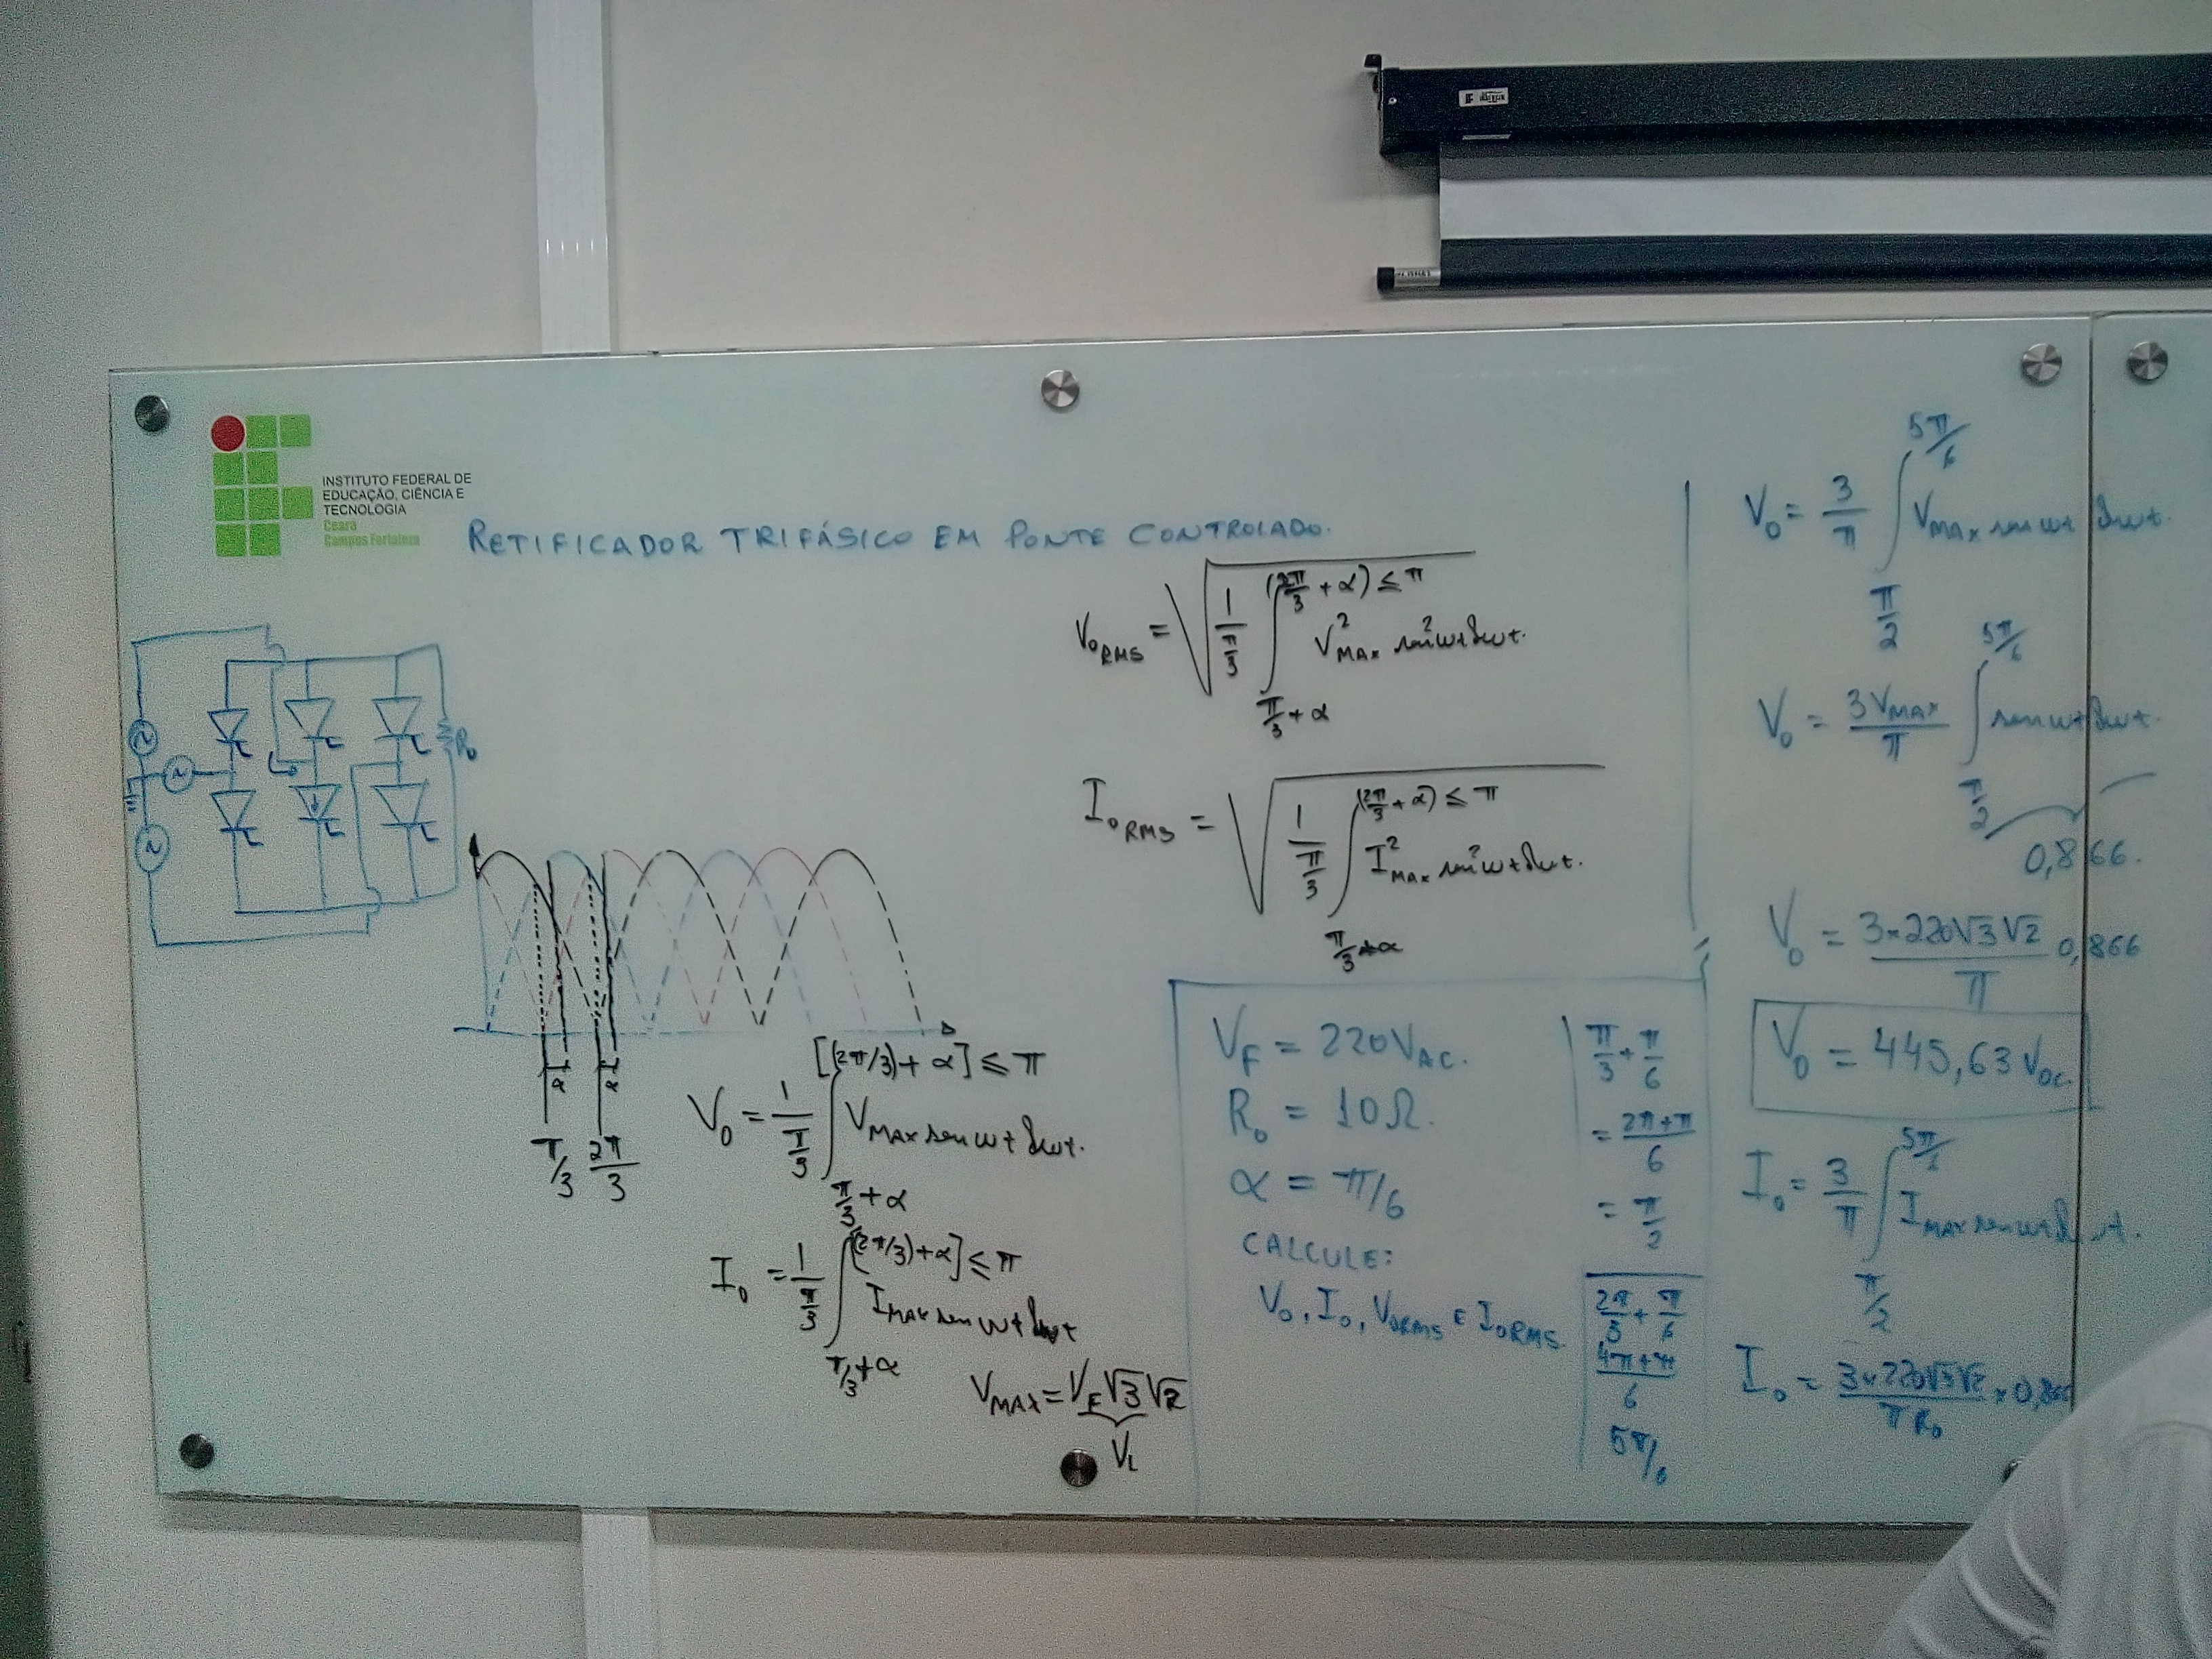 INSTITUTO FEDERAL DE
EDUCAÇÃO, CIÊNCIA E
TECNOLOGIA
Ceará
Campus Fortaleza
RETIFICADOR TRIFÁSICO EM PONTE CONTROLADO.
R₀
α α
π/3 2π/3
V₀ = 1/(π/3) ∫_{π/3+α}^{[(2π/3)+α]≤π} V_MAX sen ωt dωt.
I₀ = 1/(π/3) ∫_{π/3+α}^{[(2π/3)+α]≤π} I_MAX sen ωt dωt
V_MAX = V_F √3 √2
V_L
V₀RMS = √(1/(π/3) ∫_{π/3+α}^{(2π/3+α)≤π} V²_MAX sen²ωt dωt.
I₀RMS = √(1/(π/3) ∫_{π/3+α}^{(2π/3+α)≤π} I²_MAX sen²ωt dωt.
V_F = 220 V_AC.
R₀ = 10Ω.
α = π/6
CALCULE:
V₀, I₀, V₀RMS E I₀RMS.
π/3 + π/6
= (2π+π)/6
= π/2
2π/3 + π/6
(4π+π)/6
5π/6
V₀ = 3/π ∫_{π/2}^{5π/6} V_MAX sen ωt dωt.
V₀ = 3V_MAX/π ∫_{π/2}^{5π/6} sen ωt dωt.
0,866.
V₀ = (3×220√3√2)/π 0,866
V₀ = 445,63 V_DC.
I₀ = 3/π ∫_{π/2}^{5π/6} I_MAX sen ωt dωt.
I₀ = (3×220√3√2)/(πR₀) × 0,866